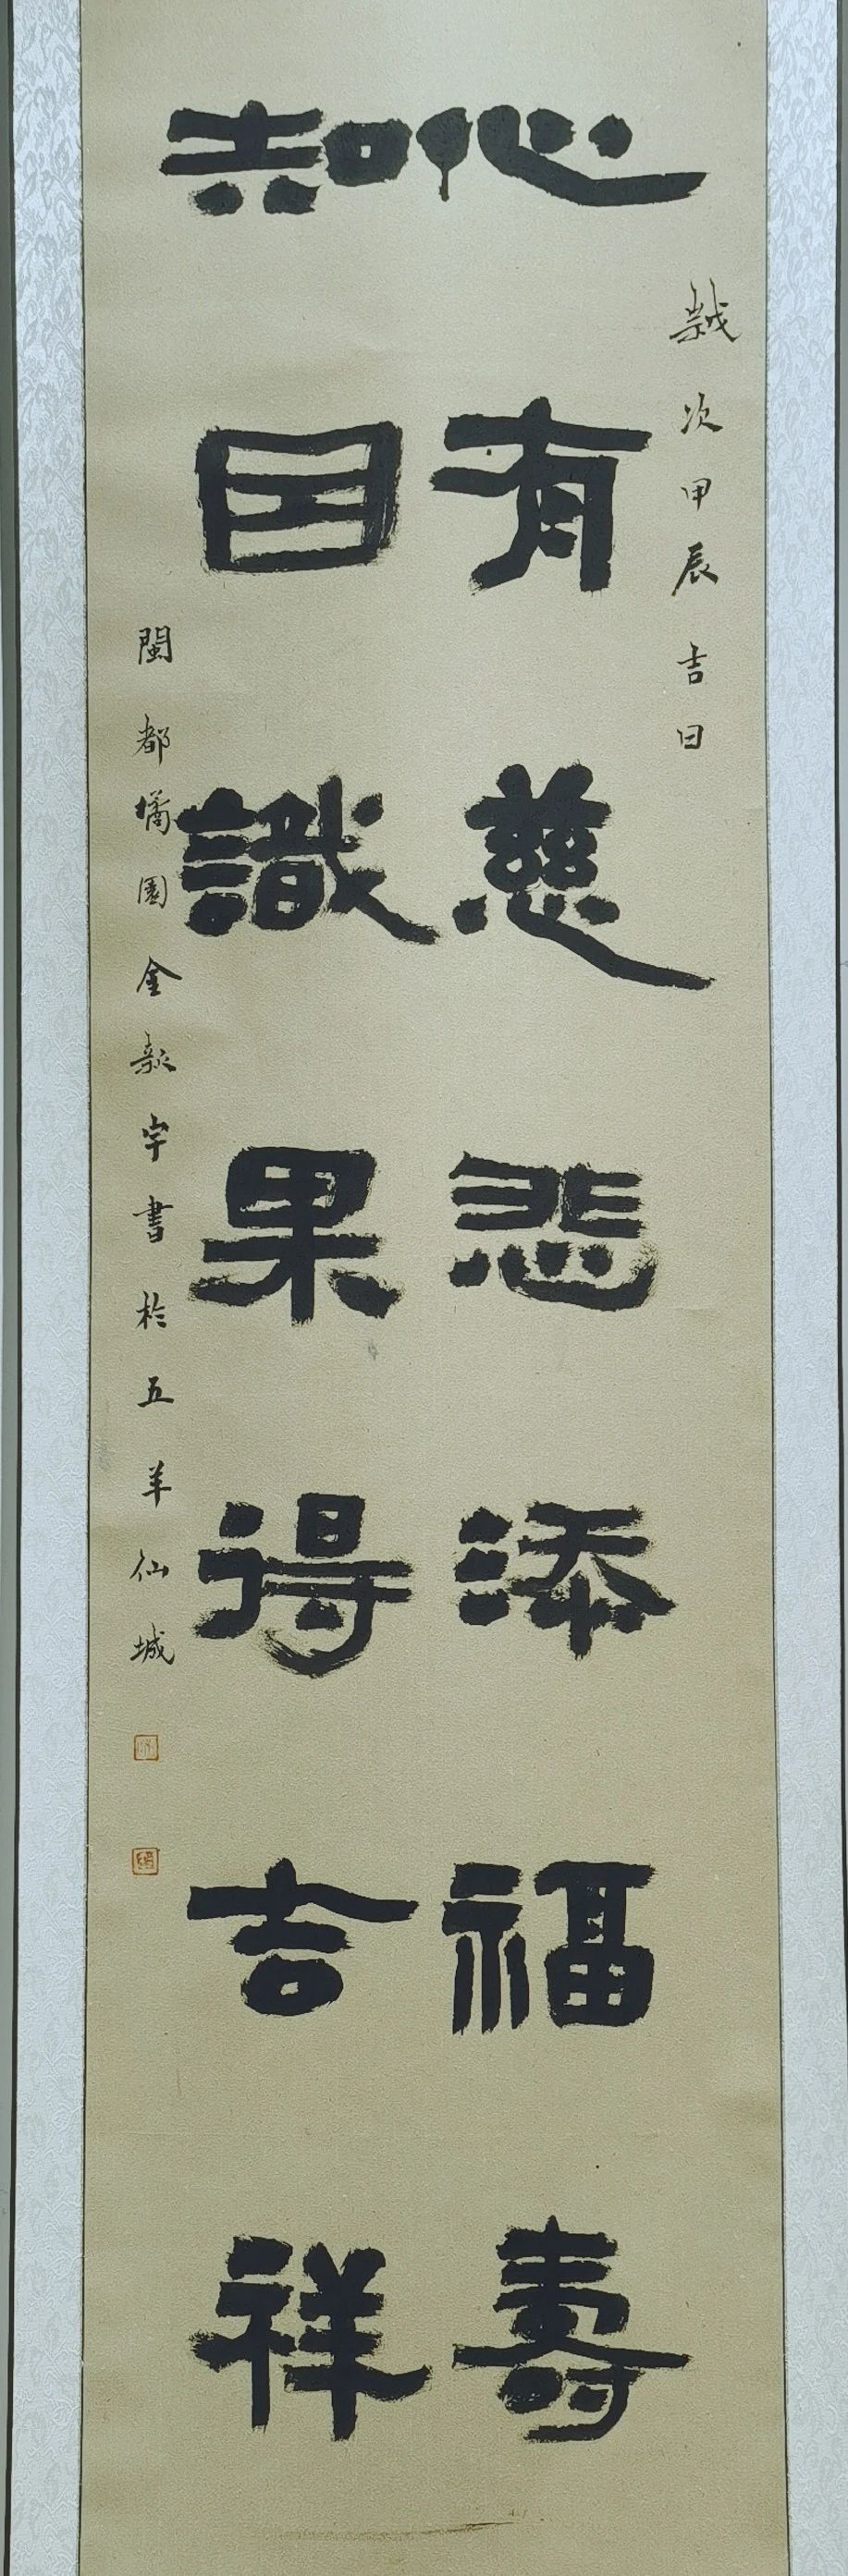 歲次甲辰吉日
心有慈悲添福壽
知因識果得吉祥
閩都園金宇書於五羊仙城